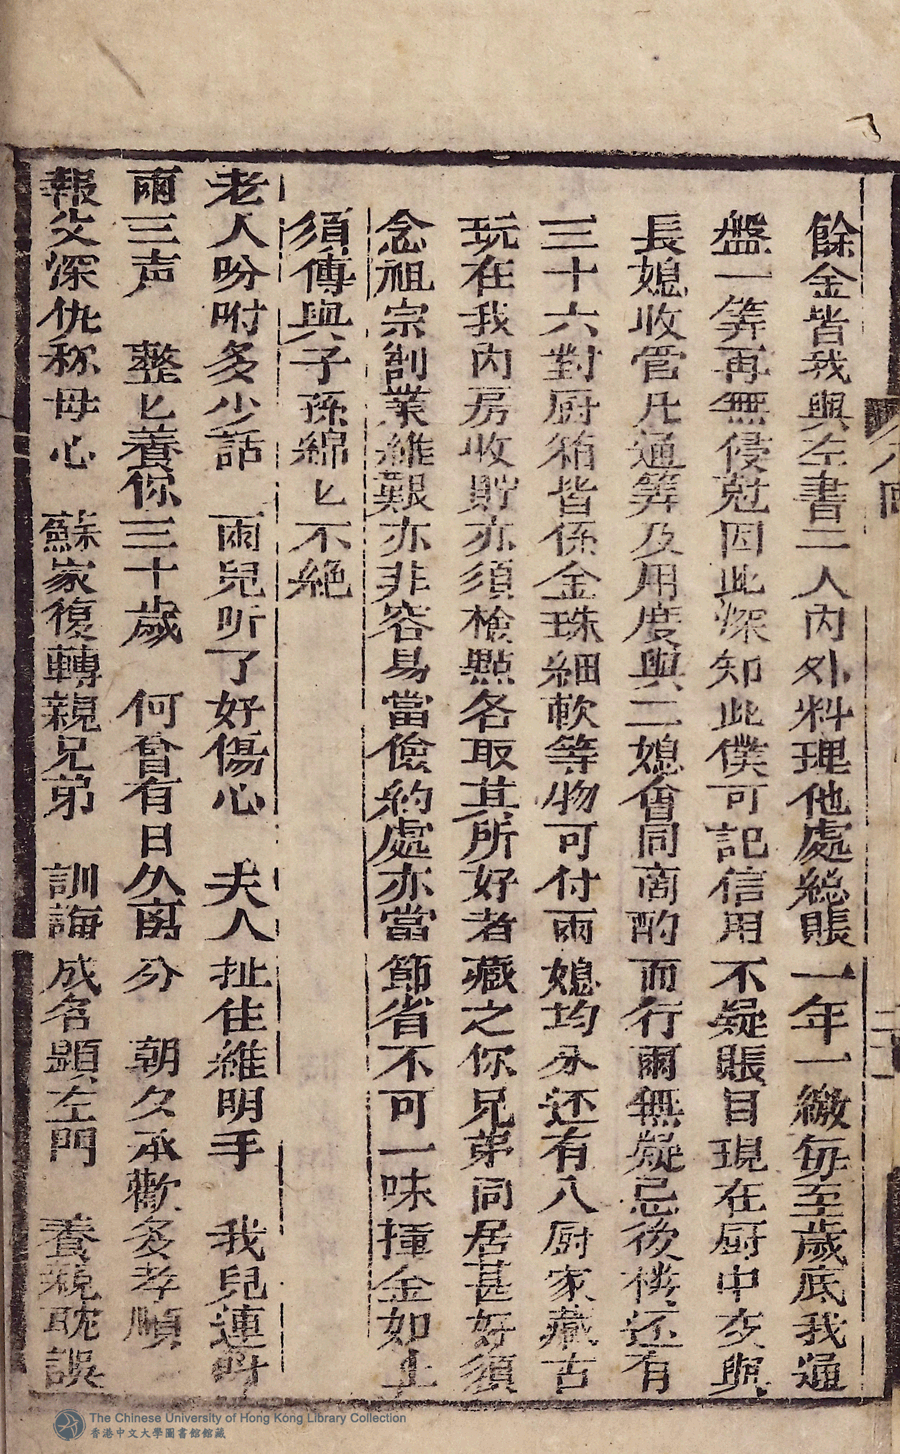 餘金皆我與左書二人內外料理他處総賬一年一繳毎至歲底我通
盤一筭再無侵尅因此深知此僕可記信用不疑賬目現在厨中交與
長媳收管凡通筭及用度與二媳會同商酌而行爾無疑忌後楼还有
三十六對厨箱皆係金珠細軟等物可付兩媳均分还有八厨家藏古
玩在我內房收貯亦須檢點各取其所好者藏之你兄弟同居甚好須
念祖宗創業維艱亦非容易當儉約處亦當節省不可一味揮金如土
須傳與子孫綿匕不絶
老人吩咐多少話　兩兒听了好傷心　夫人扯住維明手　我兒連呌
兩三声　整匕養你三十歲　何曾有日久离分　朝夕承歡多孝順
報父深仇称母心　蘇家復轉親兄弟　訓誨成名顕左門　養親耽誤
八回
The Chinese University of Hong Kong Library Collection
香港中文大學圖書館館藏